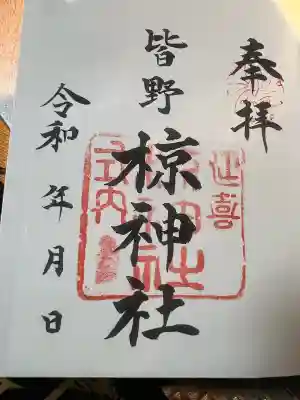 奉拝
皆野
椋神社
令和年月日
延喜
式内